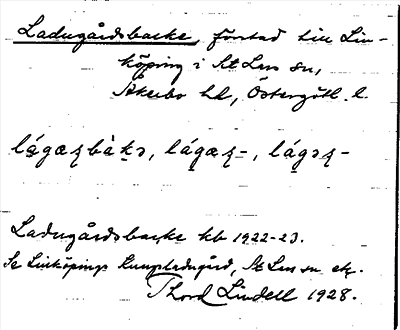 Ladugårdsbacke, förstad till Lin-
köping i St Lars sn,
Åkerbo hd, Östergötl. l.
lágaʀbàkə, lágaʀ-, lágəʀ-
Ladugårdsbacke kb 1922-23.
Se Linköpings Kungsladugård, St Lars sn etc.
Thord Lindell 1928.